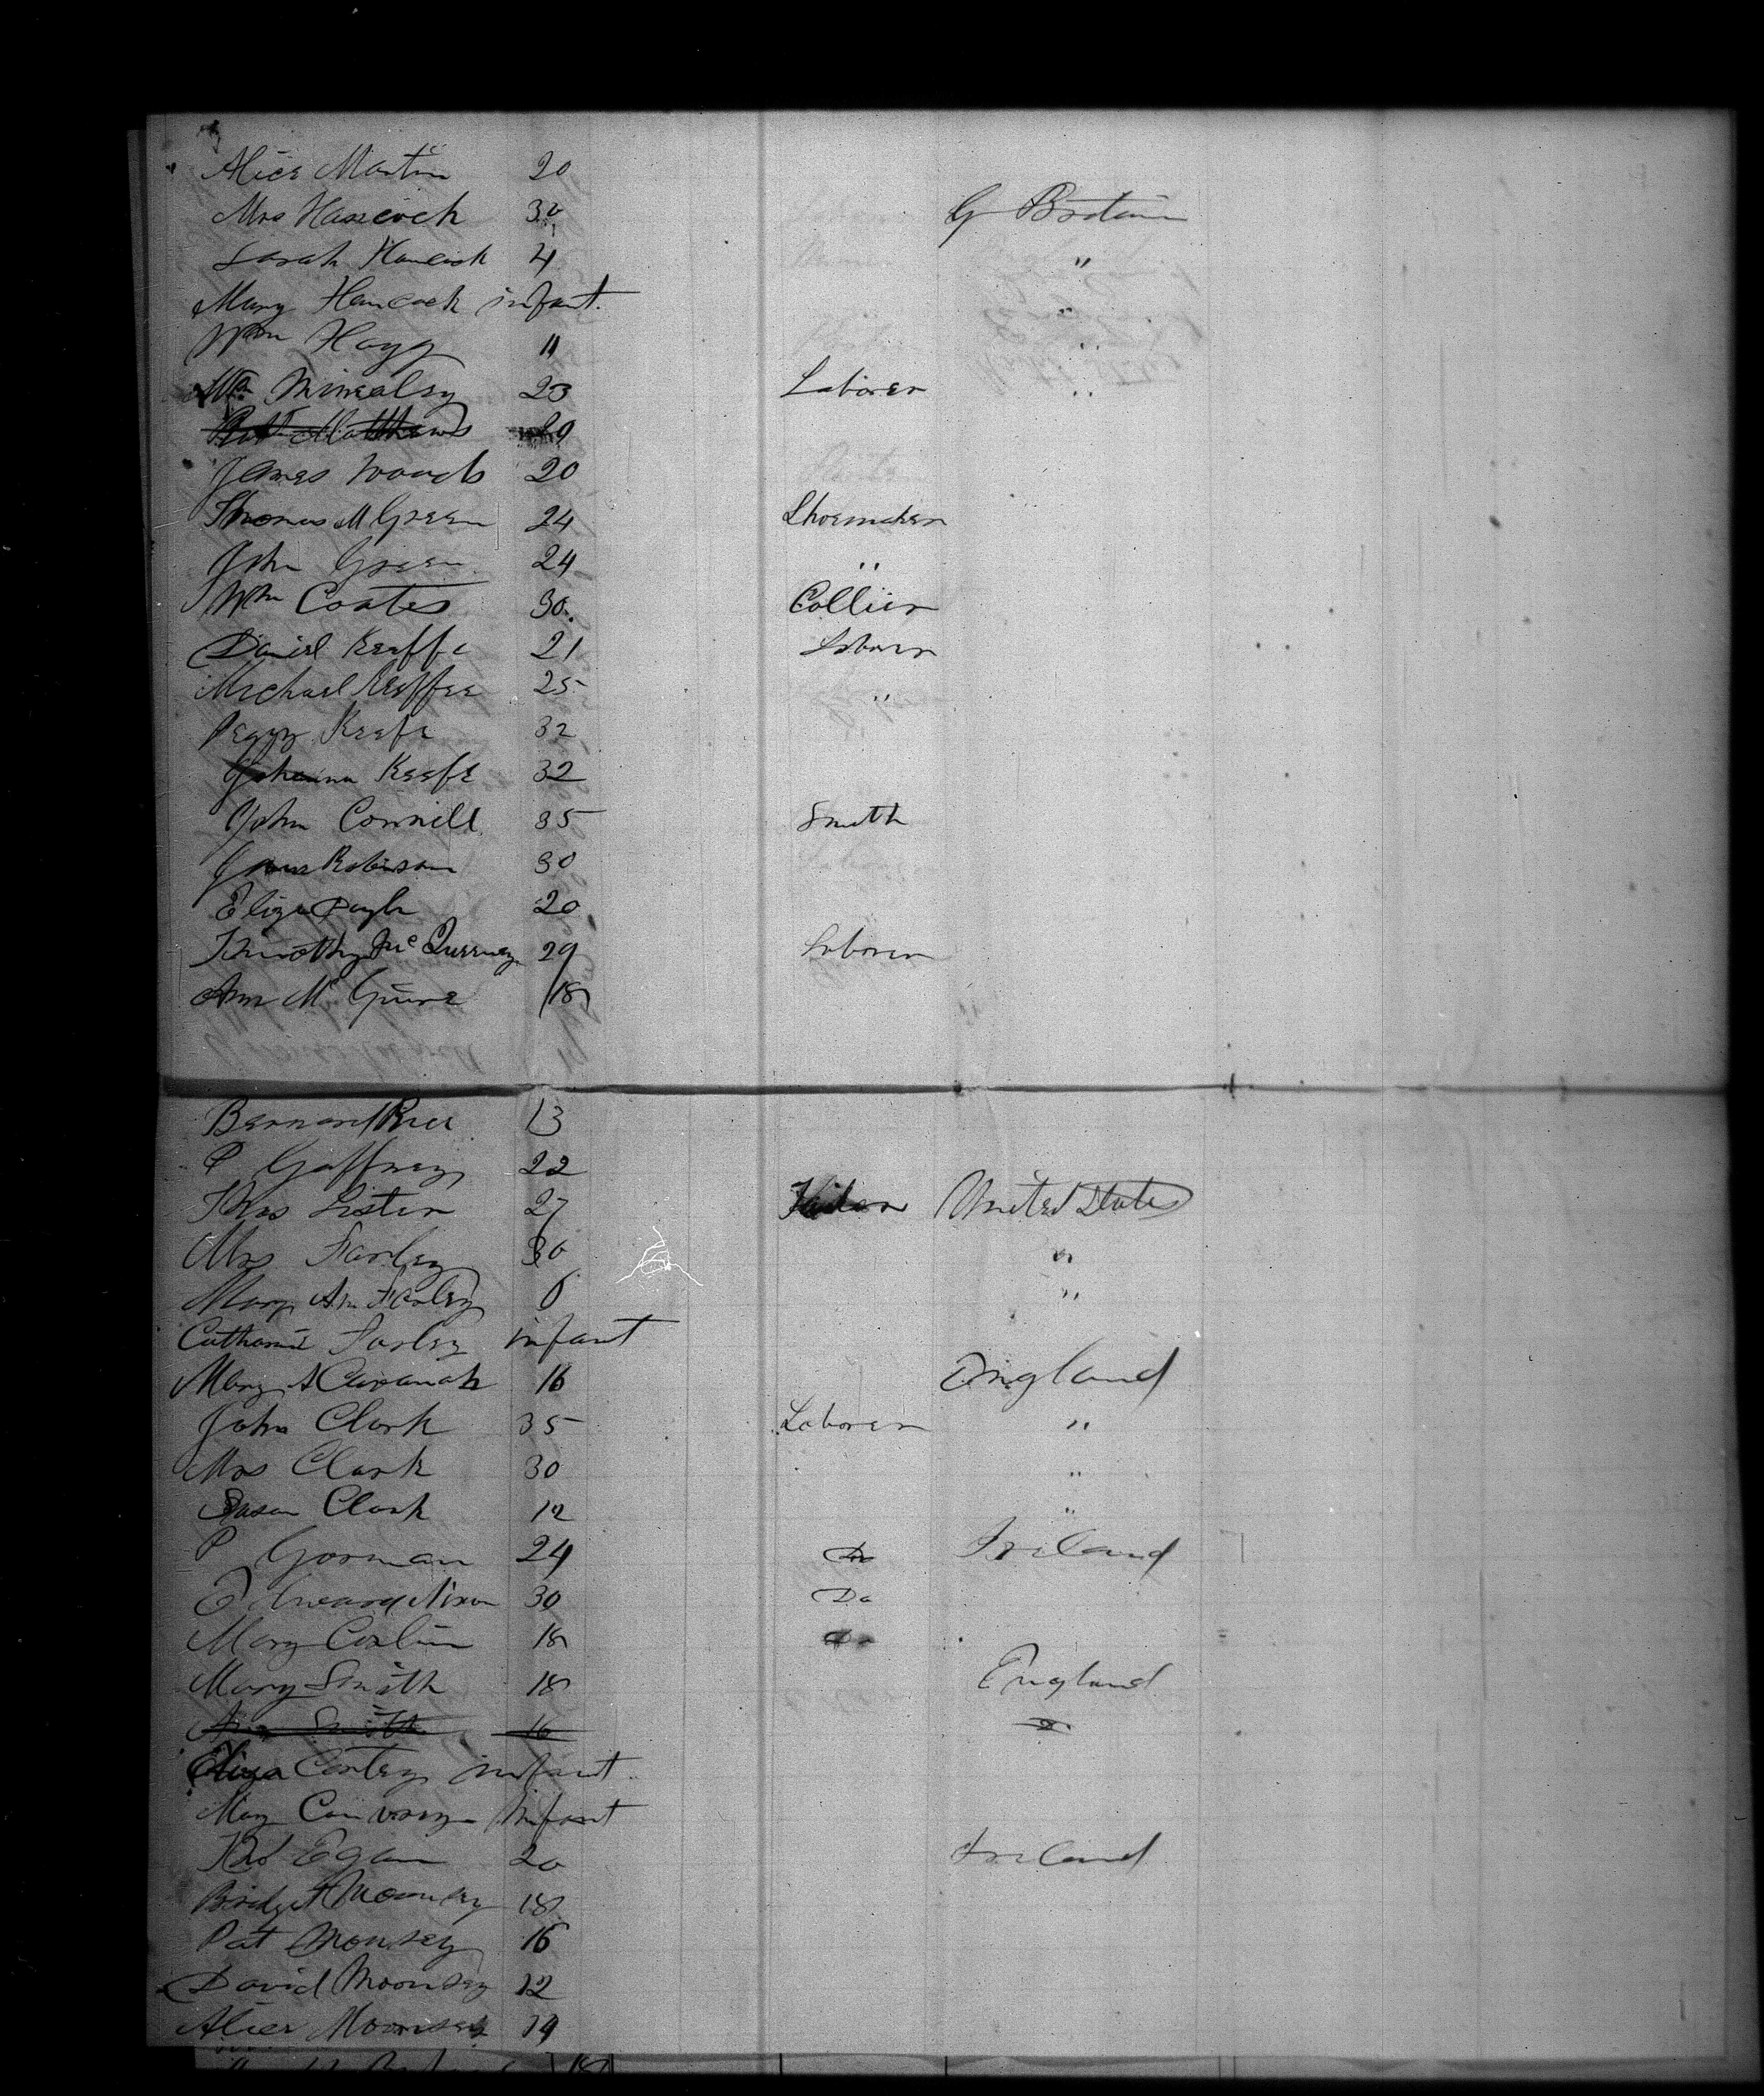 Alice Martin 20
Mrs Hancock 30 G Britain
Sarah Hancock 4 "
Mary Hancock infant. "
Wm Hogg 11 "
Wm 23 Laborer "
Pat Matthews 29
James Woods 20
Thomas M Green 24 Shoemaker
John Green 24 "
Wm Coates 30. Collier
Daniel Keaffe 21 Laborer
Michael Keeffee 25 "
Peggy Keefe 32
Johanna Keefe 32
John Connell 35 Smith
Jane Robinson 30
Eliza 20
Timothy Mc 29 Laborer
Ann Mc Guire 18
Bernard Rice 13
P Gaffney 22
Thos Lister 27 United States
Mrs Farley 30 "
Mary Ann Farley 6 "
Catharine Farley infant
Mary A Cavanah 16 England
John Clark 35 Laborer "
Mrs Clark 30 "
Susan Clark 12 "
P Gorman 24 Do Ireland
Edward Nixon 30 Do
Mary 18 Do
Mary Smith 18 England
Ann Smith 16 "
Eliza infant
May infant
Egan 20 Ireland
Bridget Moonsey 18
Pat Monsey 16
David Moonsey 12
Alice Moonsey 14